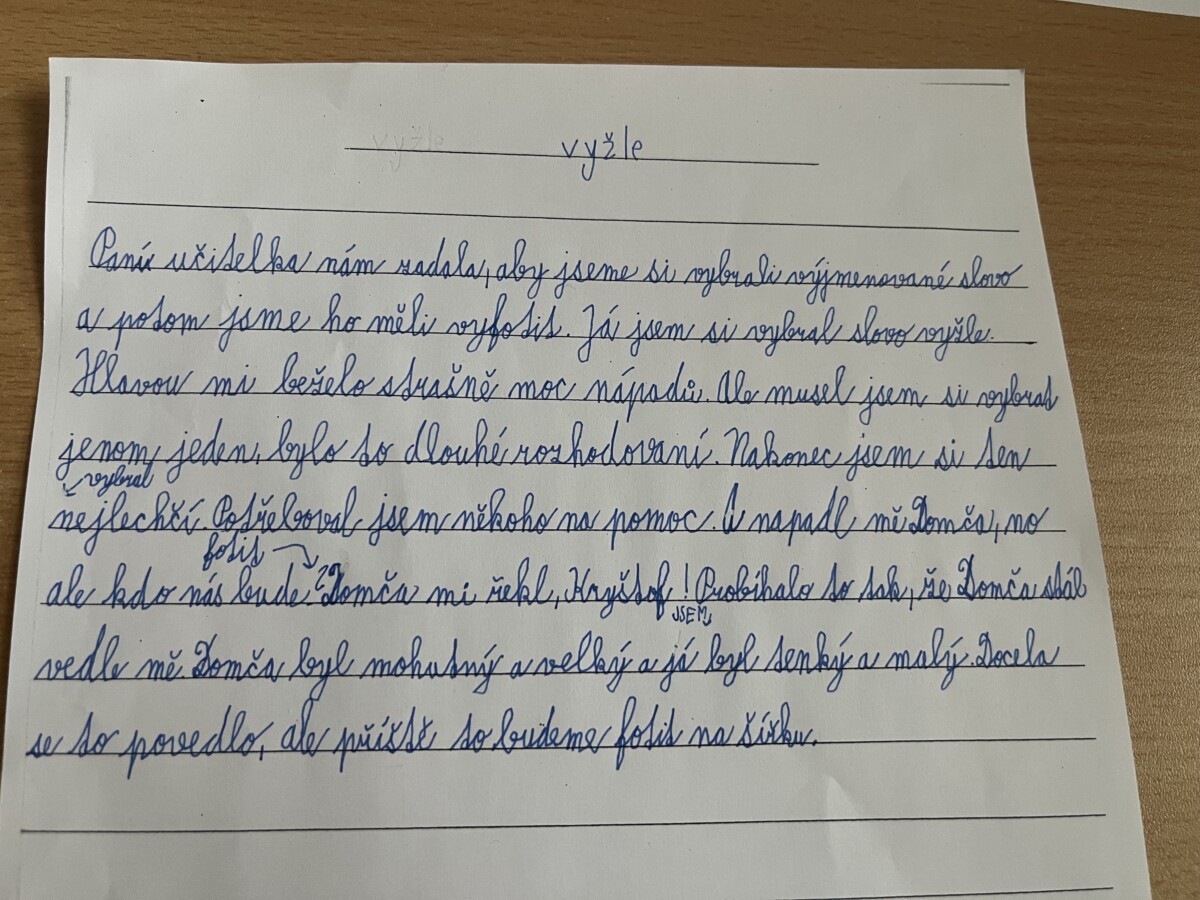 vyžle
vyžle
Paní učitelka nám zadala, aby jseme si vybrali výjmenované slovo
a potom jsme ho měli vyfotit. Já jsem si vybral slovo vyžle.
Hlavou mi beželo strašně moc nápadů. Ale musel jsem si vybrat
jenom jeden, bylo to dlouhé rozhodovaní. Nakonec jsem si ten
vybral
nejlechčí. Potřeboval jsem někoho na pomoc. A napadl mě Domča, no
fotit
ale kdo nás bude? Domča mi řekl, Kryštof! Probíhalo to tak, že Domča stál
JSEM
vedle mě. Domča byl mohutný a velký a já byl tenký a malý. Docela
se to povedlo, ale příště to budeme fotit na šířku.